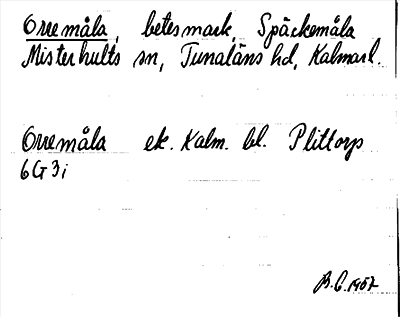 Orremåla, betesmark, Späckemåla
Misterhults sn, Tunaläns hd, Kalmarl.
Orremåla ek. Kalm. bl. Plittorp
6G3i
B.C. 1957